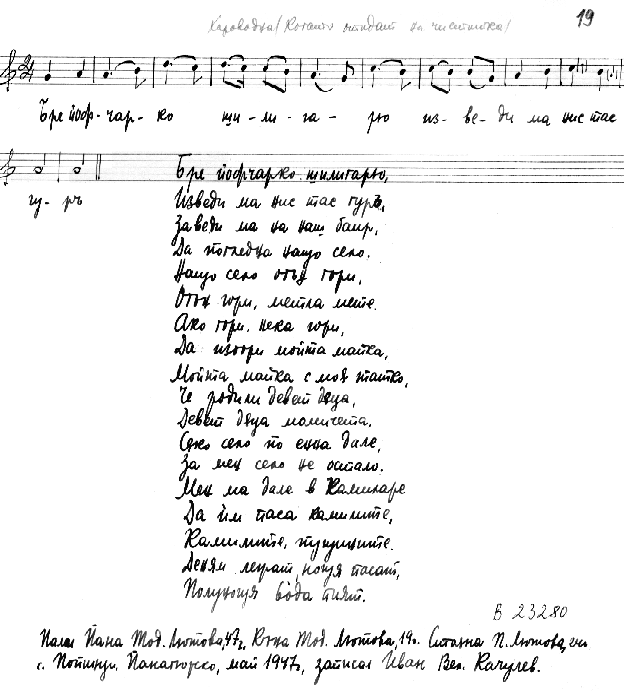 Хороводна/ Когато отидат на чиститка/
19
Бре йофчар-ко щи-ли-га-рю из-ве-ди ма нис тас
гу-ръ
Бре йофчарко щилигарю,
Изведи ма нис тас гуръ,
Заведи ма на наш баир,
Да погледна нащо село.
Нащо село огън гори,
Огън гори, метла мете.
Ако гори, нека гори,
Да изгори мойта майка,
Мойта майка с моя татко,
Че родили девет деца,
Девет деца момичета.
Сяко село по енна дале,
За мен село не остало.
Мен ма дале в Камилкаре
Да им паса камилите,
Камилите,
Деням лежат, нощя пасат,
Полунощя вода пият.
В 23280
Пали Яна Тод. Лютова, 47г, Тод. Лютова, 19г. Стояна П. Лютова,
с. Попинци, Панагюрско, май 1947г, записал Иван Вел. Качулев.